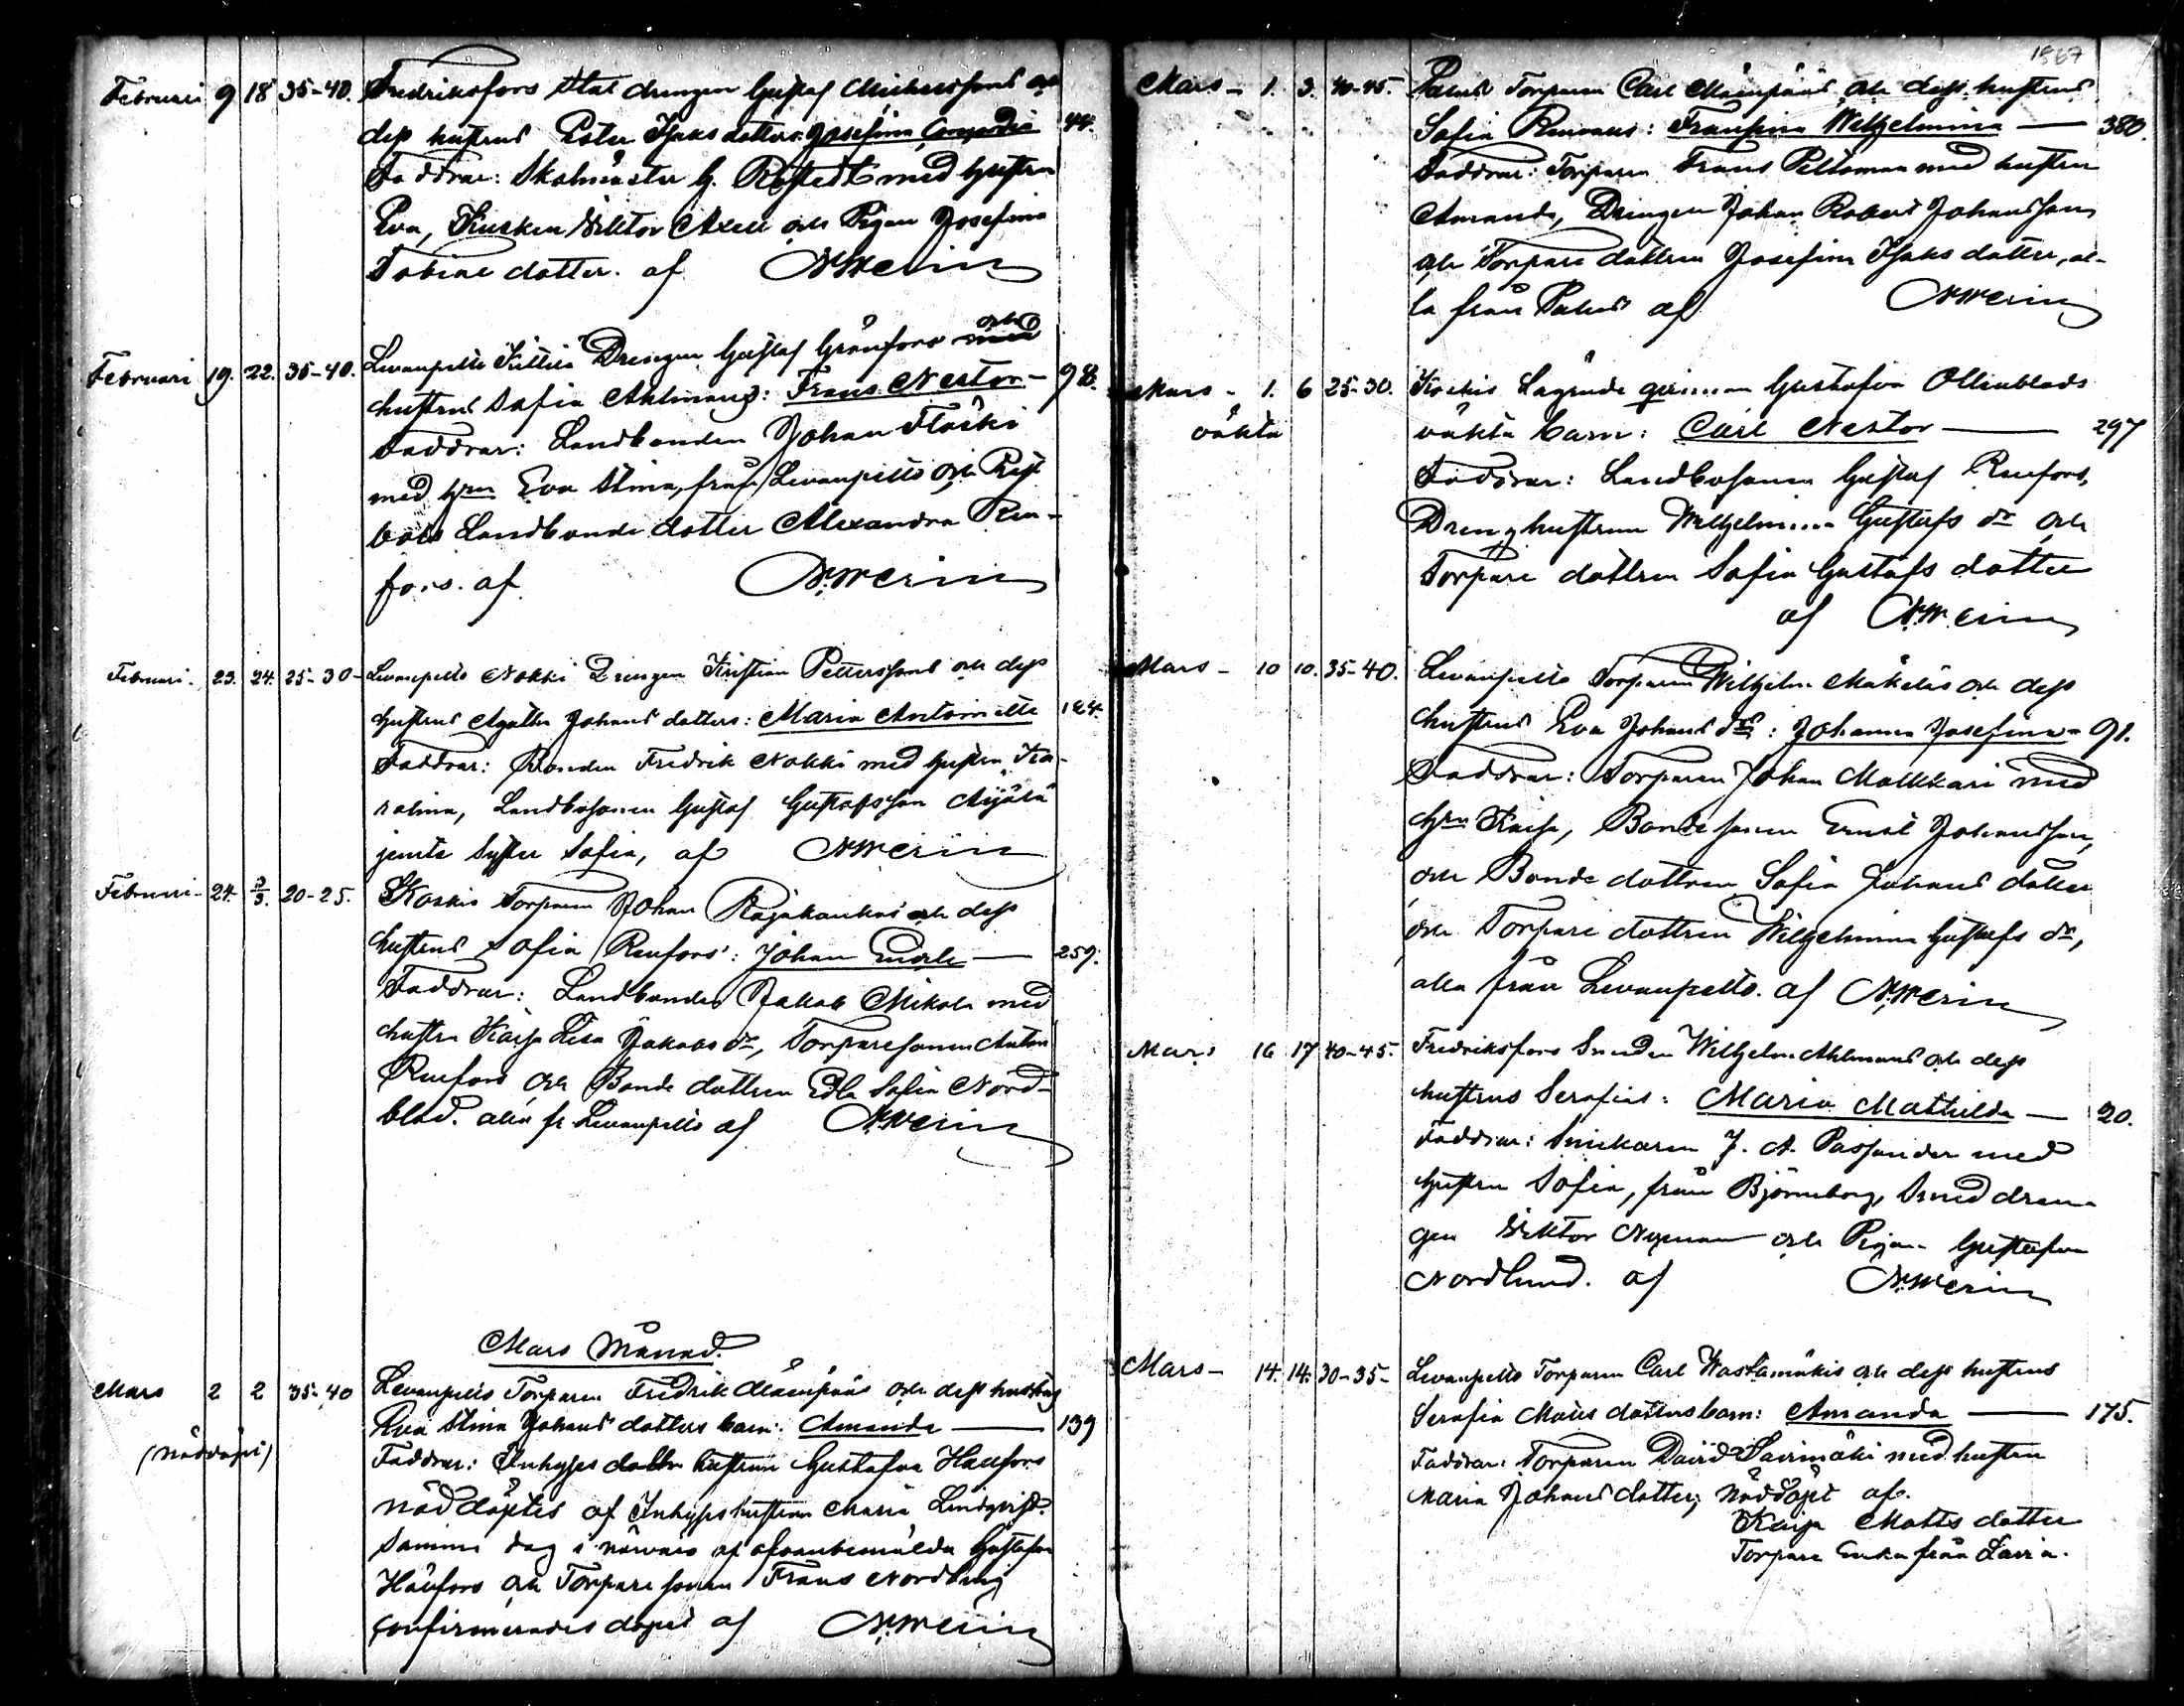 Februari 9 18 35-40. Fredriksfors Stat drengen Gustaf Michelssons och
dess hustrus Ester Isaks dotters: Josefina 44.
Faddrar: Skolmäster G. med hustru
Eva, Kusken Viktor Axell och Pigan Josefina
Tobias dotter. af
Februari 19. 22. 35-40. Levanpelto Drengen Gustaf Granfors och
hustrus Sofia Ahlmans: Frans Nestor - 98.
Faddrar: Landbonden Johan
med hrn Eva Stina, från Levanpelto och
böle Landbonde dotter Alexandra Ren-
fors. af
Februari. 23. 24. 25-30 - Levanpelto Nokki Drengen Kristian Petterssons och dess
hustrus Agatha Johans dotters: Maria Antoinette 124.
Faddrar: Bonden Fredrik Nokki med hustru Ka-
rolina, Landbosonen Gustaf Gustafsson Äijälä
jemte Syster Sofia, af
Februari - 24. 3/3. 20-25. Koskis Torparen Johan och dess
hustrus Sofia Renfors: Johan 259.
Faddrar: Landbonden Jakob Mikola med
hustru Kajsa Lisa Jakobs dr, Torparesonen Anton
Renfors och Bonde dottren Edla Sofia Nord-
blad. alla fr Levanpelto af
Mars Månad.
Mars 2 2 35-40 Levanpelto Torparen Fredrik Mäenpääs och dess hustrus
(nöddöpt) Eva Stina Johans dotters barn: Amanda — 139
Faddrar: Inhyses hustrun Gustafva Haufors
nöddöptes af Inhyses hustrun Maria Lindqvist
samma dag i närvaro af ofvanbemälda Gustafva
Haufors och Torpare sonen Frans Nordling
confirmerades dopet af
1867
Mars - 1. 3. 40-45. Torparen Carl Mäenpääs och dess hustrus
Sofia: Fransina Wilhelmina — 380.
Faddrar: Torparen Frans Peltomaa med hustru
Amanda, Drengen Johan Robert Johansson
och Torpare dottren Josefina Isaks dotter, al-
la från af
Mars - 1. 6 25-30. Koskis Lägrade qvinnan Gustafva Ollonblads
oäkta oäkta barn: Carl Nestor — 297
Faddrar: Landbosonen Gustaf Renfors,
Dreng hustrun Wilhelmina Gustafs dr och
Torpare dottren Sofia Gustafs dotter
af
Mars - 10 10. 35-40. Levanpelto Torparen Wilhelm Mäkeläs och dess
hustrus Eva Johans drs: Johanna Josefina - 91.
Faddrar: Torparen Johan Molkkari med
hrn Kajsa, Bonde sonen Ernst Johansson,
och Bonde dottren Sofia Johans dotter
och Torpare dottren Wilhelmina Gustafs dr,
alla från Levanpelto. af
Mars 16 17 40-45. Fredriksfors Smeden Wilhelm Ahlmans och dess
hustrus Serafias: Maria Mathilda — 20.
Faddrar: Snickaren J. A. Passander med
hustru Sofia, från Björneborg, Smed dren-
gen Viktor Nyman och Pigan Gustafva
Nordlund. af
Mars - 14. 14. 30-35 - Levanpelto Torparen Carl Wastamäkis och dess hustrus
Serafia Matts dotters barn: Amanda — 175.
Faddrar: Torparen David med hustru
Maria Johans dotter; Nöddöpt af.
Kaisa Matts dotter
Torpare Enka från Lavia.